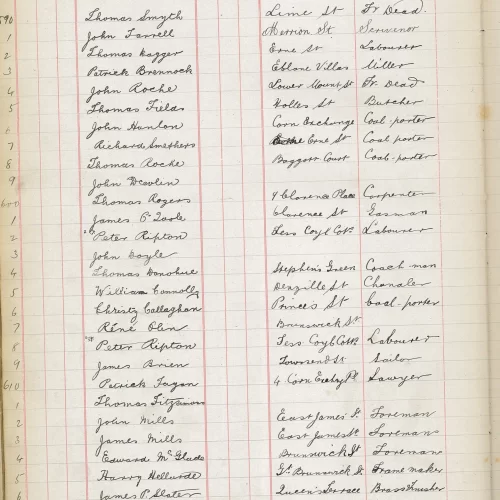 590 Thomas Smyth Lime St Fr Dead.
1 John Farrell Merrion St. Scrivenor
2 Thomas Kagger Erne St Labourer
3 Patrick Brennock Eblane Villas Miller
4 John Roche Lower Mount St Fr. Dead
5 Thomas Fields Holles St Butcher
6 John Hanlon Corn Exchange Coal-porter
7 Richard Smethers Erne St Coal porter
8 Thomas Roche Baggott Court Coal-porter
9 John
600 Thomas Rogers 4 Clarence Place Carpenter
1 James O'Toole Clarence St Gasman
2 Peter Ripton Less Coyl Cotts Labourer
3 John Doyle
4 Thomas Donohue Stephen's Green Coach-man
5 William Connolly Denzille St Chandler
6 Christy Callaghan Princes St Coal-porter
7 Réné Brunswick St
8 Peter Ripton Less Coyl Cotts Labourer
9 James Brien Townsend St Sailor
610 Patrick Fagan 4 Corn Exchge Pl Sawyer
1 Thomas Fitzsimons
2 John Mills East James St. Foreman
3 James Mills East James St. Foreman
4 Edward Brunswick St Foreman
5 Harry Gt Brunswick St Frame maker
6 James P. Slater Queen's Terrace Brass Finisher